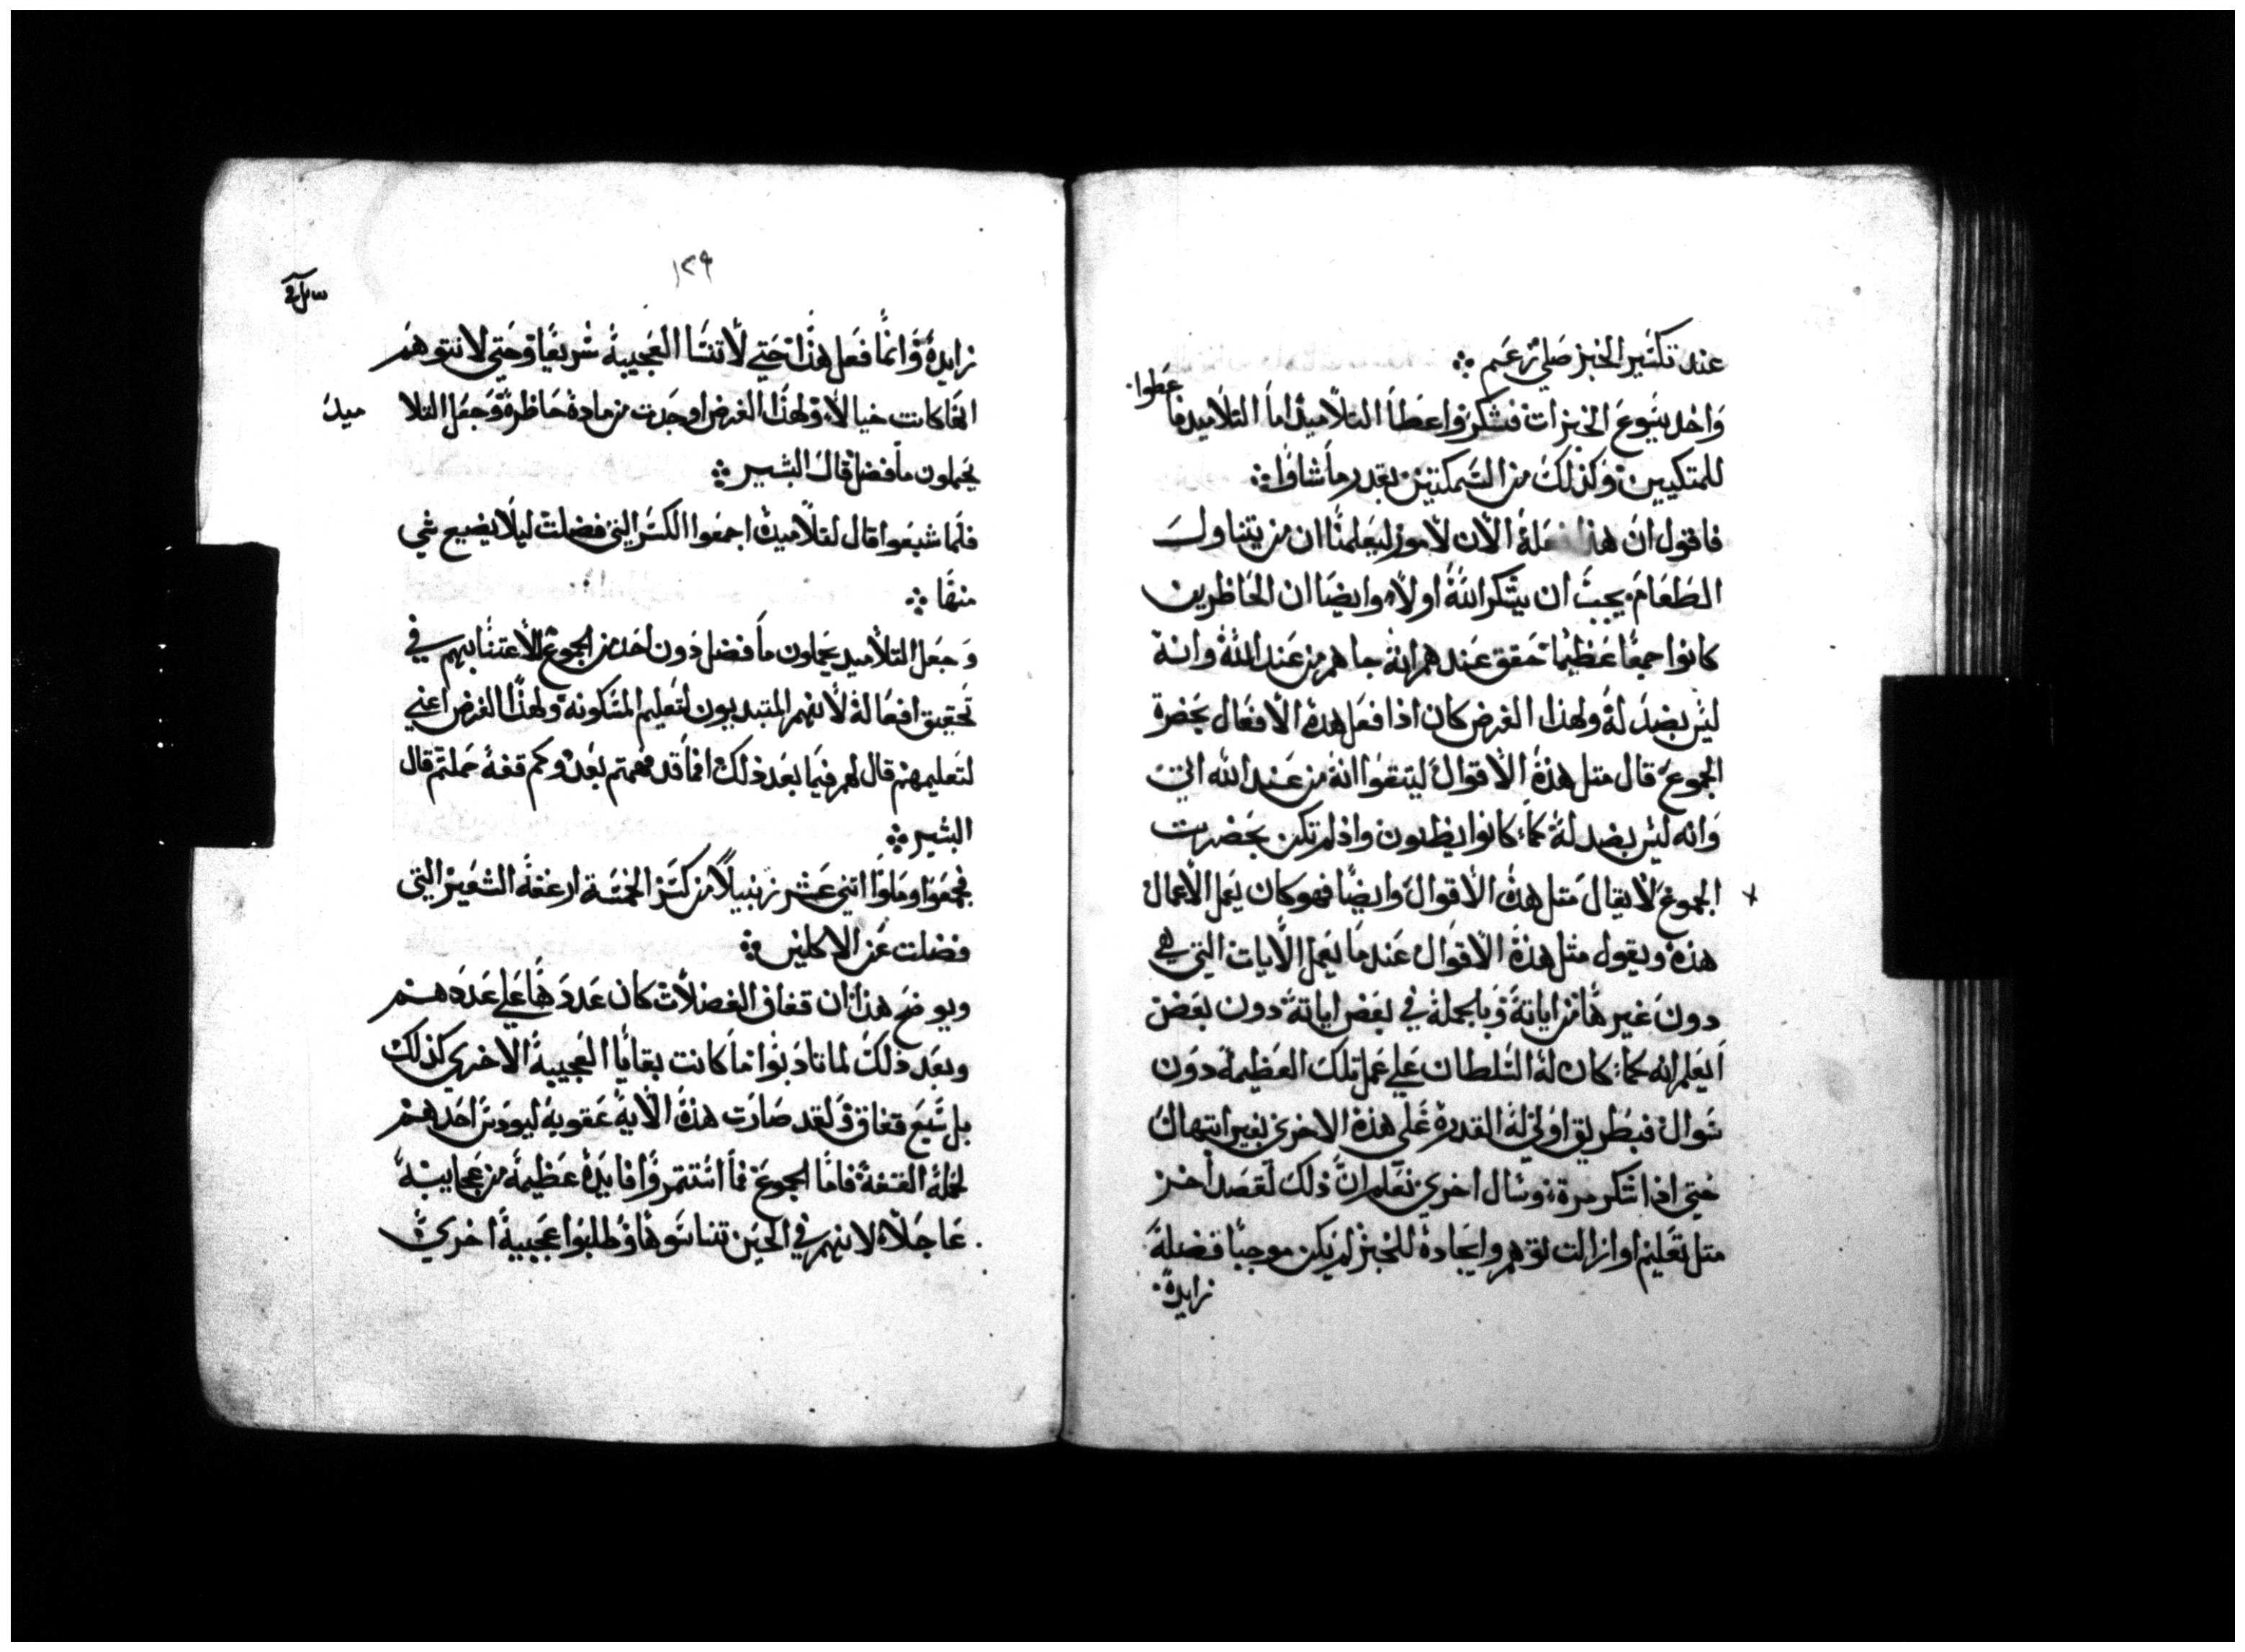 عند تكتير الخبز صلي زعم ⁘
واخد يسوع الخبزات فشكر واعطا التلاميد اما التلاميد فا
عطوا.
للمتكيين وكذلك من السمكتين بقدر ما شاوا:
فاقول ان هذا فعلهُ الان لامور ليعلمنا ان من يتناول
الطعام يجب ان يشكر الله اولاً وايضا ان الحاظرين
كانوا جمعًا عظيمًا تحقق عندهم انه جاهم من عند الله وانه
ليس بضد له ولهذا الغرض كان اذا فعل هده الافعال بحضرة
الجموع قال متل هذه الاقوال ليتقوا انه من عند الله اتي
وانه ليس بضد له كما كانوا يظنون واذ لم تكن بحضرت
الجموع لا يقال متل هده الاقوال وايضًا فهو كان يعمل الاعمال
هذه ويقول متل هذه الاقوال عندما يعمل الايات التي هي
دون غيرها من اياته وبالجملة في بعض اياته دون بعض
ليعلم انه كما كان له السلطان علي عمل تلك العظيمة دون
سوال فبطريق اولي له القدرة علي هذه الاخري بغير ابتهال
حتي اذا شكر مرة وسال اخري نعلم ان ذلك لقصد اخر
متل تعليم او ازالت توهم وايجاده للخبز لم يكن موجبًا فضلة
زايدة.
١٢٩
زايدة وانما فعل هذا حتي لا تنسا العجيبة سريعًا وحتي لا نتوهم
انها كانت خيالاً ولهذا الغرض اوجدت من مادة حاظرة وجعل التلا
ميد
يحملون ما فضل قال البشير ⁘
فلما شبعوا قال لتلاميده اجمعوا الكسر التي فضلت ليلا يضيع شي
منها ⁘
وجعل التلاميد يحملون ما فضل دون احد من الجموع الاعتنا بهم في
تحقيق افعاله لانهم المتبديون لتعليم المسكونه ولهذا الغرض اعني
لتعليمهم قال لهم فيما بعد ذلك اما قد فهمتم بعد وكم قفة حملتم قال
البشير ⁘
فجمعوا وملوا اتني عشر زنبيلاً من كسر الخمسة ارغفة الشعير التي
فضلت عن الاكلين ⁘
ويوضح هذا ان قفاف الفضلات كان عددها علي عددهم
وبعد ذلك لما تادبوا ما كانت بقايا العجيبة الاخري كذلك
بل سبع قفاف ولقد صارت هذه الاية عقوبة ليودس احدهم
لحمله القفة فاما الجموع فما استتمروا فايدة عظيمة من عجايبه
عاجلاً لانهم في الحين تناسوها وطلبوا عجيبة اخري